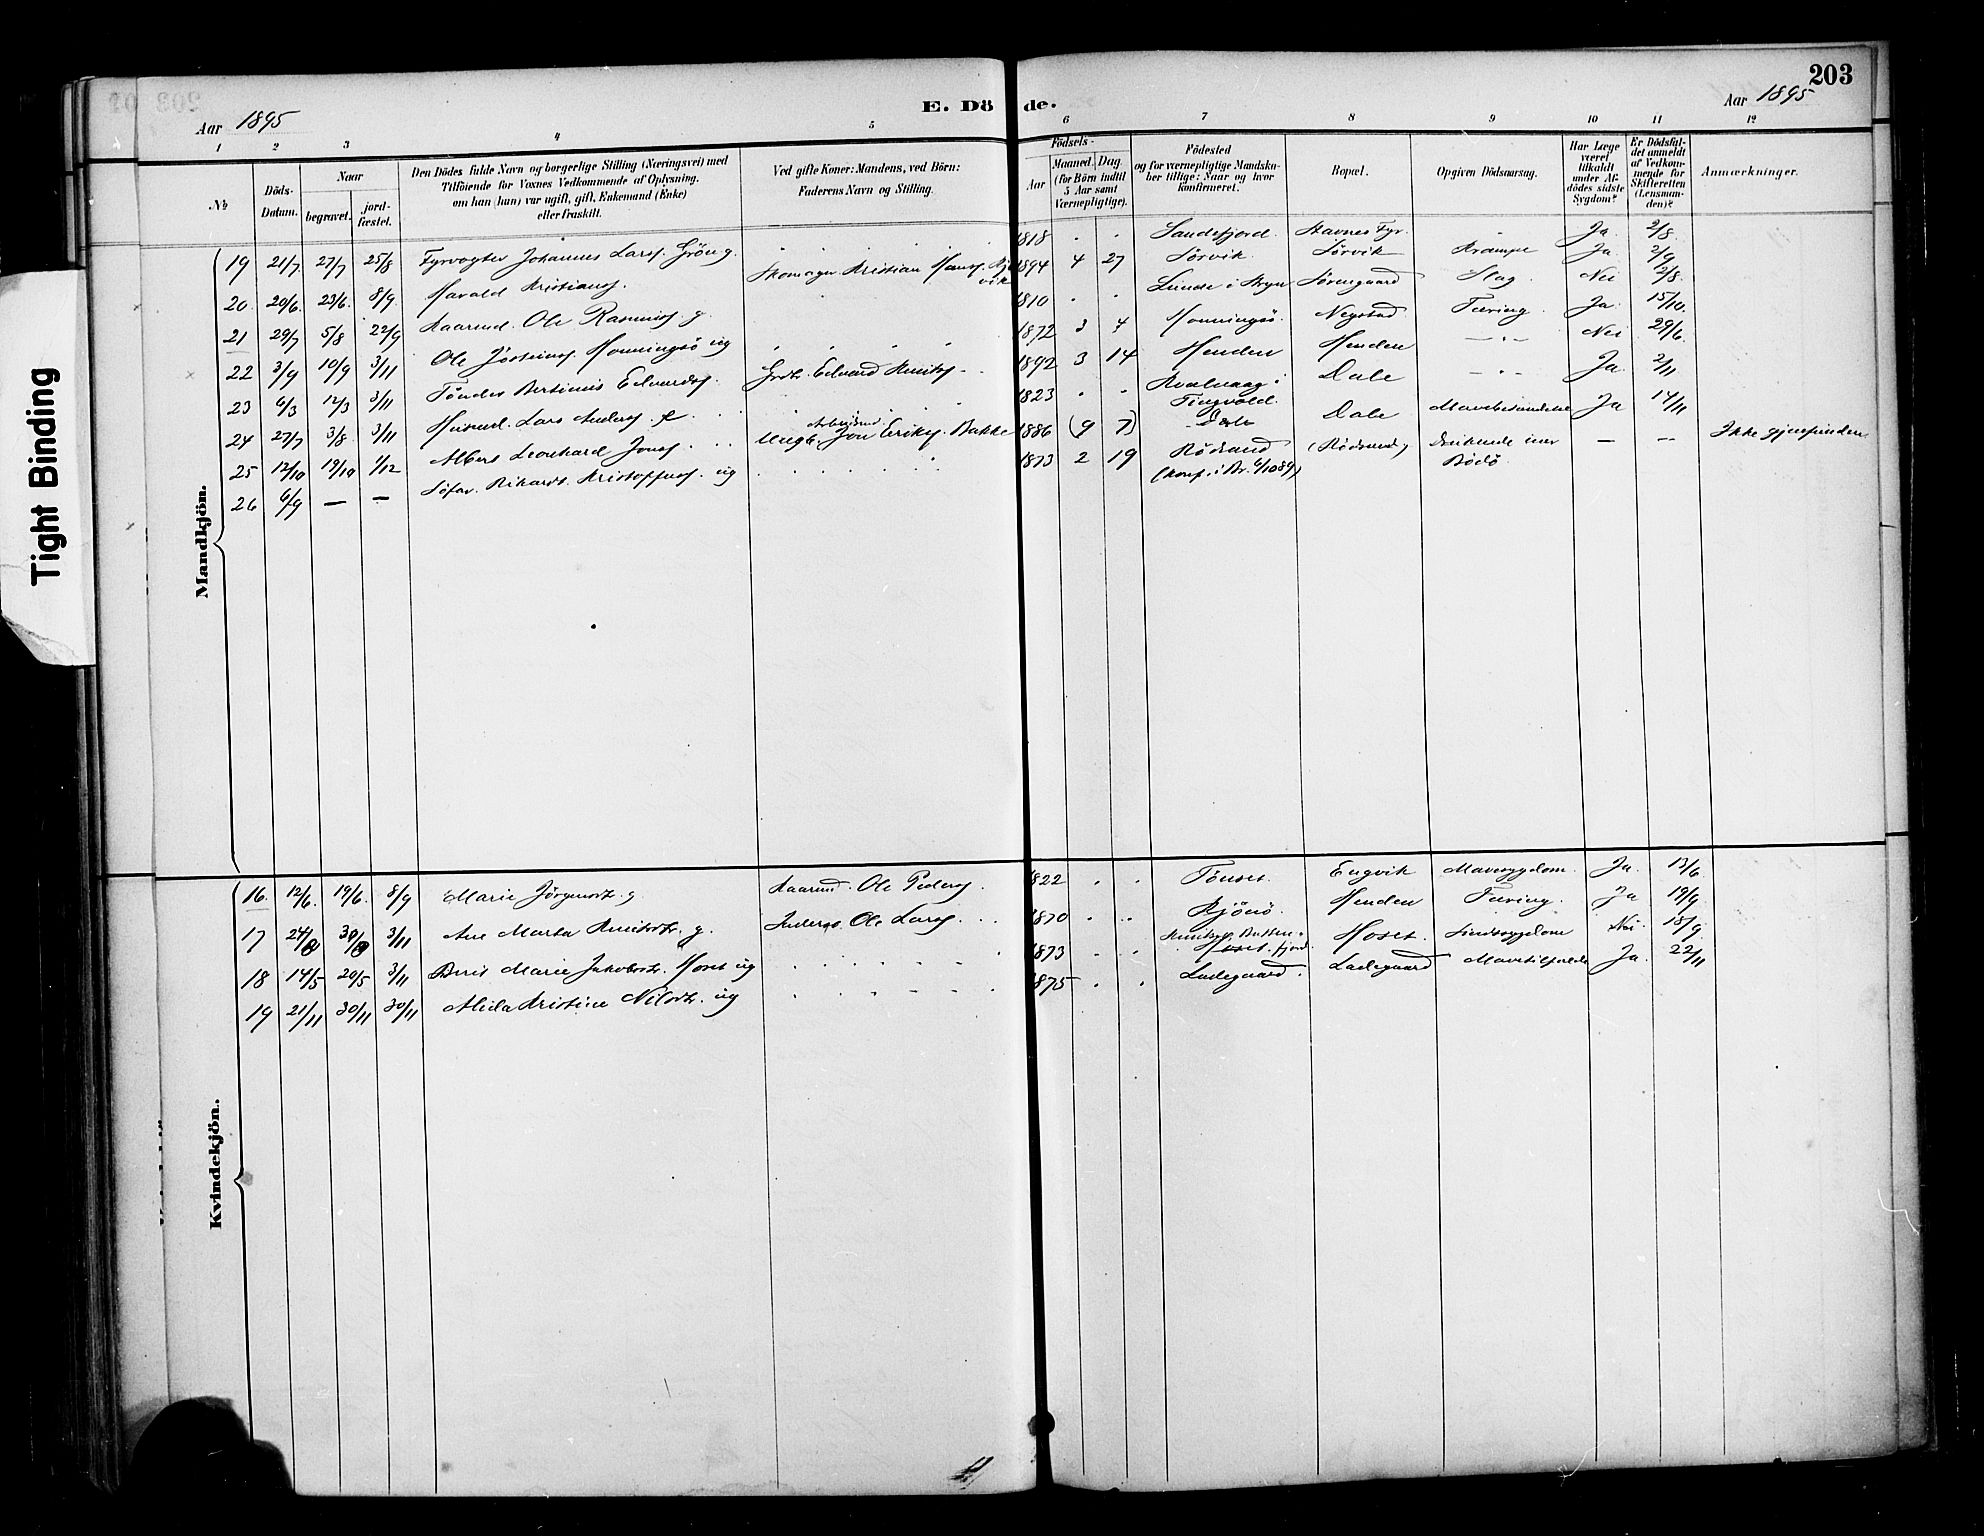 203
E. Döde.
Aar 1895
Aar 1895
1 2 3 4 5 6 7 8 9 10 11 12
No
Döds-Datum.
Naar
begravet.
jord-fæstet.
Den Dödes fulde Navn og borgerlige Stilling (Næringsvei) med
Tilföiende for Voxnes Vedkommende af Oplysning,
om han (hun) var ugift, gift, Enkemand (Enke)
eller fraskilt.
Ved gifte Koner: Mandens, ved Börn:
Faderens Navn og Stilling.
Födsels-
Aar
Maaned. Dag.
(for Börn indtil
5 Aar samt
Værnepligtige).
Födested
og for værnepligtige Mandska-
ber tillige: Naar og hvor
konfirmeret.
Bopæl.
Opgiven Dödsaarsag.
Har Læge
været
tilkaldt
under Af-
dödes sidste
Sygdom?
Er Dödsfal-
det anmeldt
af Vedkom-
mende for
Skifteretten
(Lensman-
den)?
Anmærkninger.
Tight Binding
Mandkjön.
19 21/7 27/7 25/8 Fyrvogter Johannes Larss. Grön g. 1818 Sandefjord. Stavnes Fyr. Ja. 2/8.
20. 20/6. 23/6. 8/9. Harald Kristianss. Skomager Kristian Hanss. 1894 4 27 Sörvik. Sörvik Krampe Ja. 2/9
21 29/7 5/8 22/9 Kaarmd. Ole Rasmuss. g. 1810 Lunde i Stryn Sörengaard Slag Nei 2/8.
22 3/9 10/9 3/11 Ole Honningsö ug 1872 3 4 Honningsö. Negstad. Tæring Ja. 15/10.
23 6/3 12/3 3/11 Tönder Bertinus Edvardss. Edvard Knuts. 1892 3 14 Henden Henden Nei 29/6.
24 27/7 3/8 3/11 Husmd. Lars Anderss. e. 1823 Kvalvaag i Tingvold. Dale Ja. 2/11
25 12/10 19/10 1/12 Albert Leonhard Jonss. Arbeidsmd. Jon Eriks. Bakke 1886 (9 7) Dale Dale Mavebetændelse Ja 14/11
26 6/9 — — Söfar. Rikardt Kristoffers. ug 1873 2 19 Rödsand (konf. i Br. 6/10 89) (Rödsand) Druknede Bodö — — Ikke gjenfunden
Kvindekjön.
16. 12/6. 19/6. 8/9 Marie Jörgensdt. g Kaarmd. Ole Peders. 1822 Tönset. Engvik Mavesygdom. Ja. 13/6.
17 Ane Marta Knutsdt. g. Ole Larss. 1870 Kjönö. Henden Tæring. Ja 19/9.
18 14/5 20/5 3/11 Berit Marie Jakobsdt. Hoset ug 1873 Hoset. Nei. 18/9
19 21/11 30/11 30/11 Alida Kristine Nilsdt. ug 1875 Ladegaard. Ladegaard Ja. 22/11